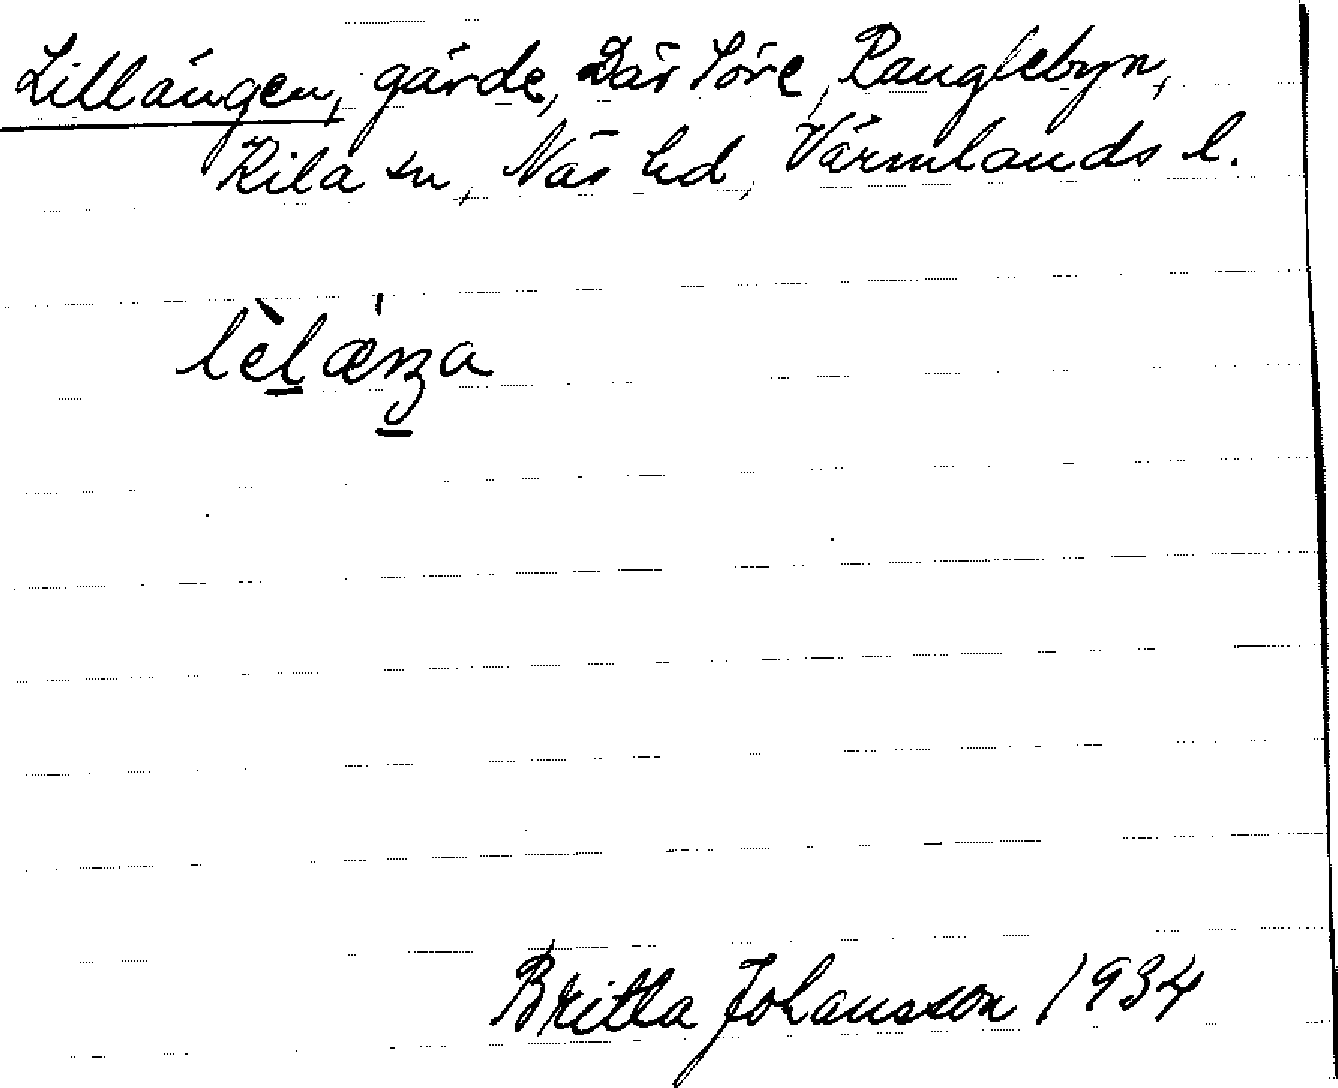 Lillängen, gärde, Där Söre, Ranglebyn,
Kila sn, Näs hd, Värmlands l.
Britta Johansson 1934